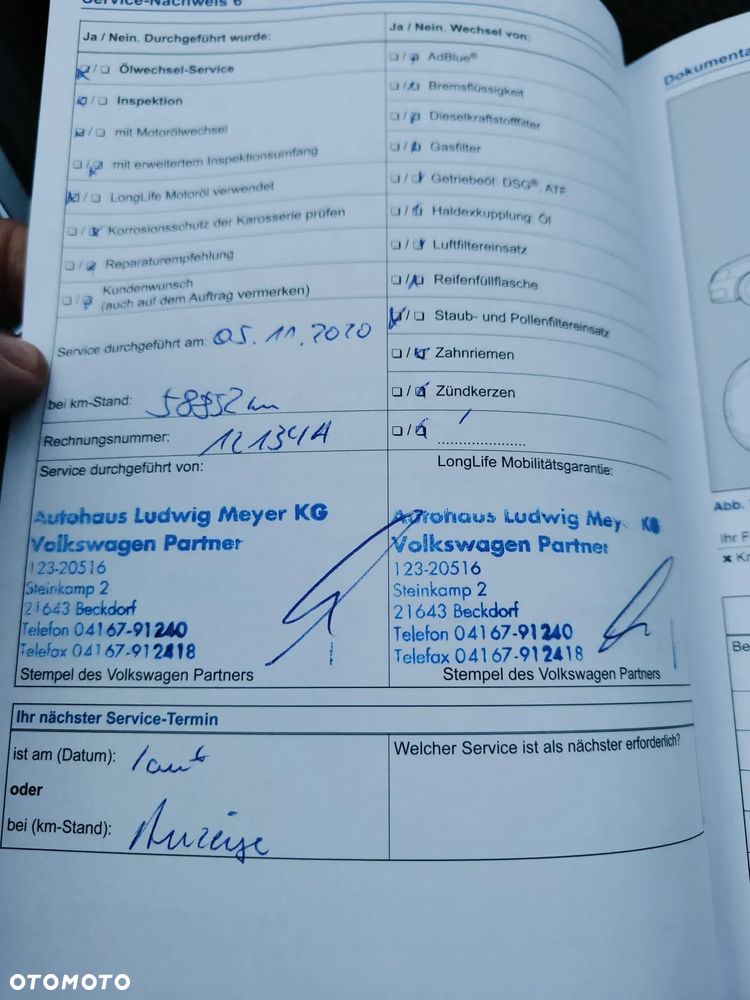 Service-Nachweis 6
Ja / Nein. Durchgeführt wurde:
Ölwechsel-Service
Inspektion
mit Motorölwechsel
mit erweitertem Inspektionsumfang
LongLife Motoröl verwendet
Korrosionsschutz der Karosserie prüfen
Reparaturempfehlung
Kundenwunsch
(auch auf dem Auftrag vermerken)
Service durchgeführt am: 05.11.2020
bei km-Stand: 58952 km
Rechnungsnummer: 121344
Service durchgeführt von:
Autohaus Ludwig Meyer KG
Volkswagen Partner
123-20516
Steinkamp 2
21643 Beckdorf
Telefon 04167-91240
Telefax 04167-912418
Stempel des Volkswagen Partners
Ja / Nein. Wechsel von:
AdBlue®
Bremsflüssigkeit
Dieselkraftstofffilter
Gasfilter
Getriebeöl: DSG®, ATF
Haldexkupplung: Öl
Luftfiltereinsatz
Reifenfüllflasche
Staub- und Pollenfiltereinsatz
Zahnriemen
Zündkerzen
LongLife Mobilitätsgarantie:
Autohaus Ludwig Mey KG
Volkswagen Partner
123-20516
Steinkamp 2
21643 Beckdorf
Telefon 04167-91240
Telefax 04167-912418
Stempel des Volkswagen Partners
Ihr nächster Service-Termin
ist am (Datum): laut
oder
bei (km-Stand): Anzeige
Welcher Service ist als nächster erforderlich?
Dokumenta
Abb.
Ihr F
Be
OTOMOTO